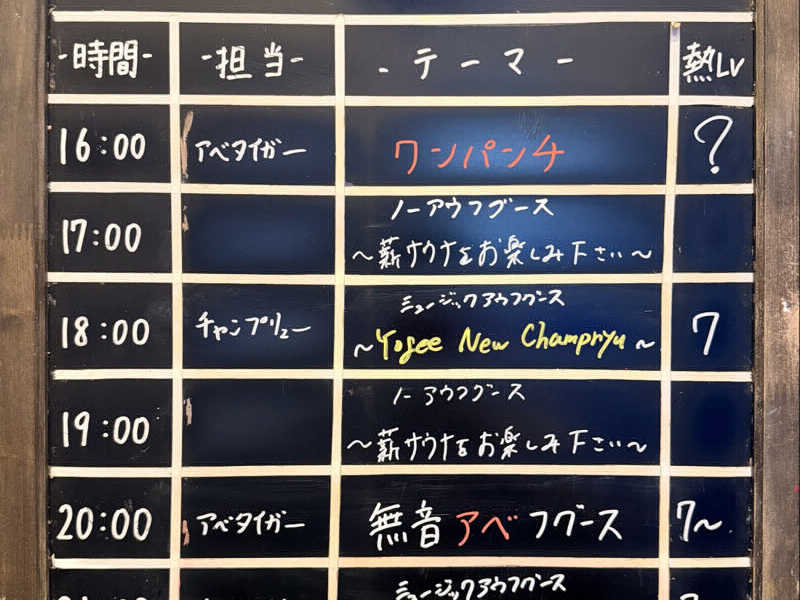 -時間- -担当- -テーマ- 熱Lv
16:00 アベタイガー ワンパンチ ?
17:00 ノーアウフグース
～薪サウナをお楽しみ下さい～
18:00 チャンプリュー ミュージックアウフグース 7
～Yogee New Champryu～
19:00 ノーアウフグース
～薪サウナをお楽しみ下さい～
20:00 アベタイガー 無音アベフグース 7～
ミュージックアウフグース